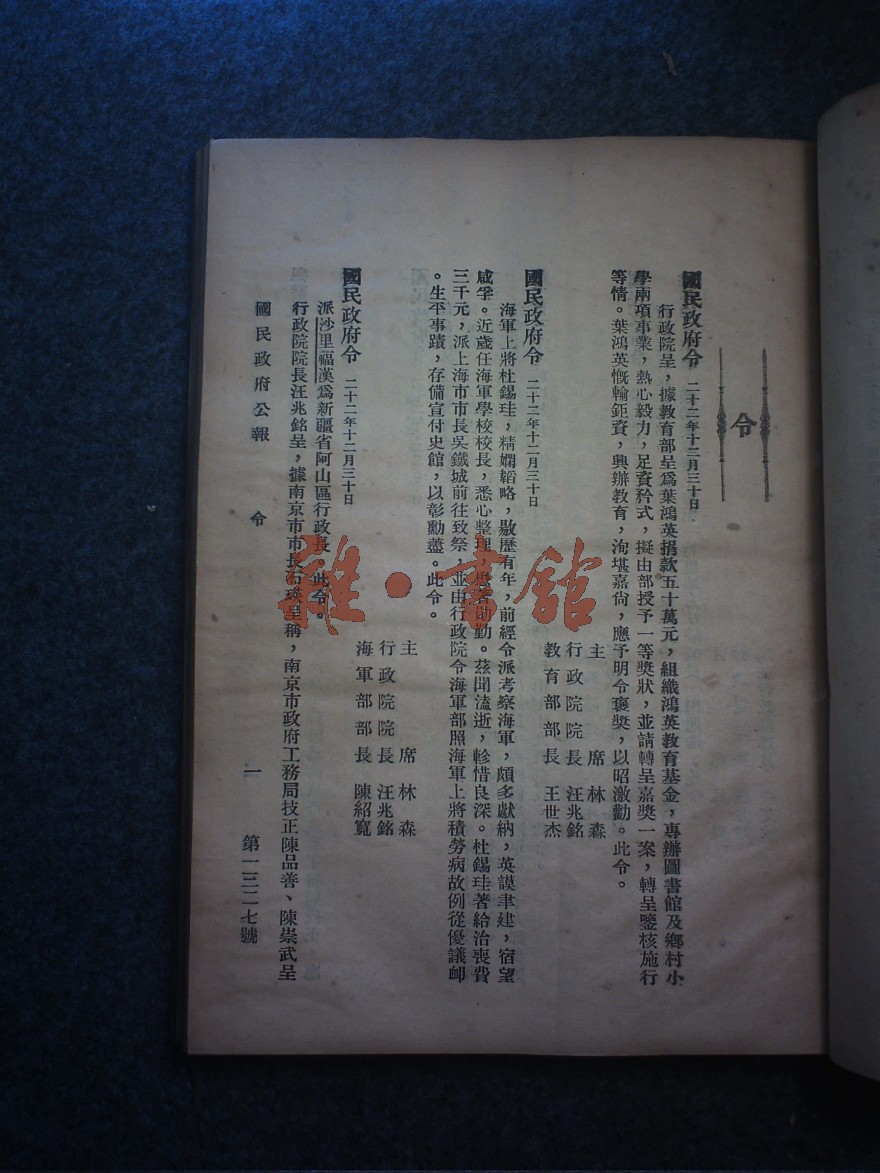 令
國民政府令 二十二年十二月三十日
行政院呈，據教育部呈爲葉鴻英捐款五十萬元，組織鴻英教育基金，專辦圖書館及鄉村小
學兩項事業，熱心毅力，足資矜式，擬由部授予一等獎狀，並請轉呈嘉獎一案，轉呈鑒核施行
等情。葉鴻英慨輸鉅資，興辦教育，洵堪嘉尙，應予明令褒獎，以昭激勸。此令。
主席 林森
行政院院長 汪兆銘
教育部部長 王世杰
國民政府令 二十二年十二月三十日
海軍上將杜錫珪，精嫻韜略，敭歷有年，前經令派考察海軍，頗多獻納，英謨聿建，宿望
咸孚。近歲任海軍學校校長，悉心整理，勤。茲聞溘逝，軫惜良深。杜錫珪著給治喪費
三千元，派上海市市長吳鐵城前往致祭，並由行政院令海軍部照海軍上將積勞病故例從優議卹
。生平事蹟，存備宣付史館，以彰勳藎。此令。
主席 林森
行政院院長 汪兆銘
海軍部部長 陳紹寬
國民政府令 二十二年十二月三十日
派沙里福漢爲新疆省阿山區行政長。此令。
行政院院長汪兆銘呈，據南京市市長石瑛呈稱，南京市政府工務局技正陳品善、陳崇武呈
國民政府公報 令 一 第一三二七號
雜·書館